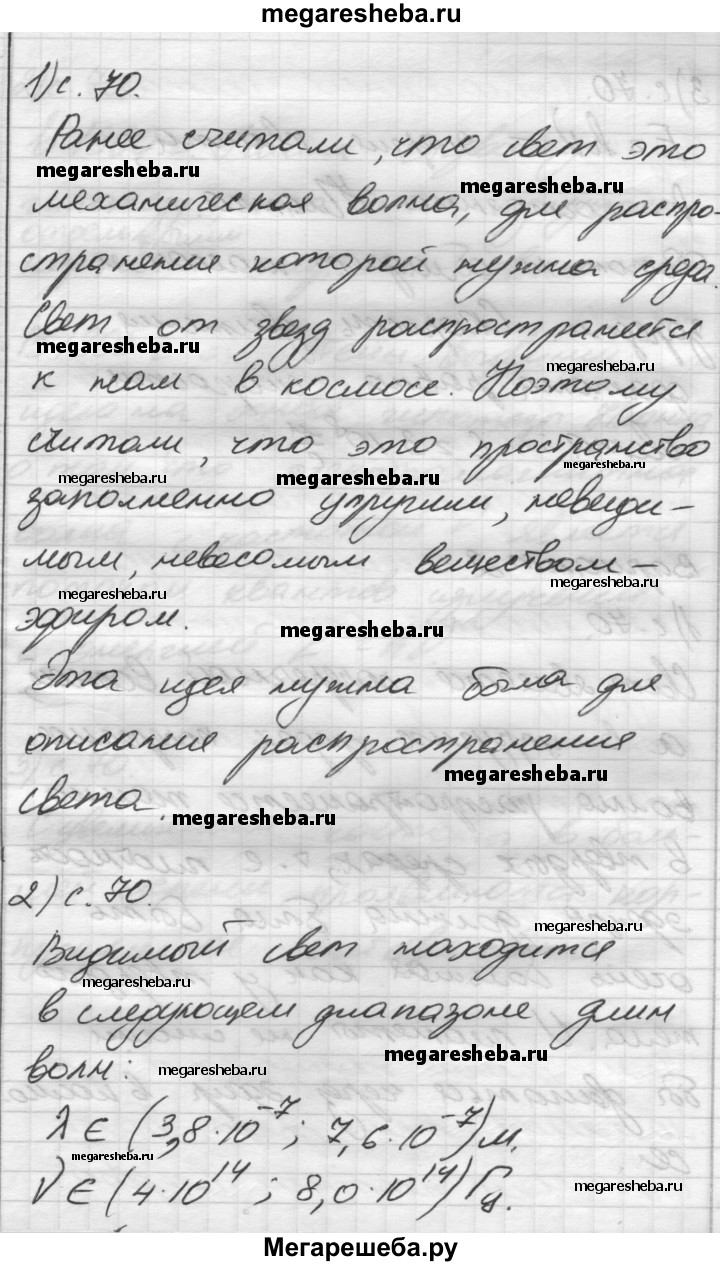 megaresheba.ru
1) с. 70.
Ранее считали, что свет это
megaresheba.ru
megaresheba.ru
механическая волна, для распро-
странения которой нужна среда.
Свет от звезд распространяется
megaresheba.ru
megaresheba.ru
к нам в космосе. Поэтому
считали, что это пространство
megaresheba.ru
megaresheba.ru
megaresheba.ru
заполненно упругим, невиди-
мым, невесомым веществом –
megaresheba.ru
megaresheba.ru
эфиром.
megaresheba.ru
Эта идея нужна была для
описания распространения
megaresheba.ru
света.
megaresheba.ru
2) с. 70.
megaresheba.ru
Видимый свет находится
megaresheba.ru
в следующем диапазоне длин
megaresheba.ru
волн:
megaresheba.ru
λ ∈ (3,8·10⁻⁷; 7,6·10⁻⁷) м.
megaresheba.ru
ν ∈ (4·10¹⁴; 8,0·10¹⁴) Гц.
megaresheba.ru
Мегарешеба.ру